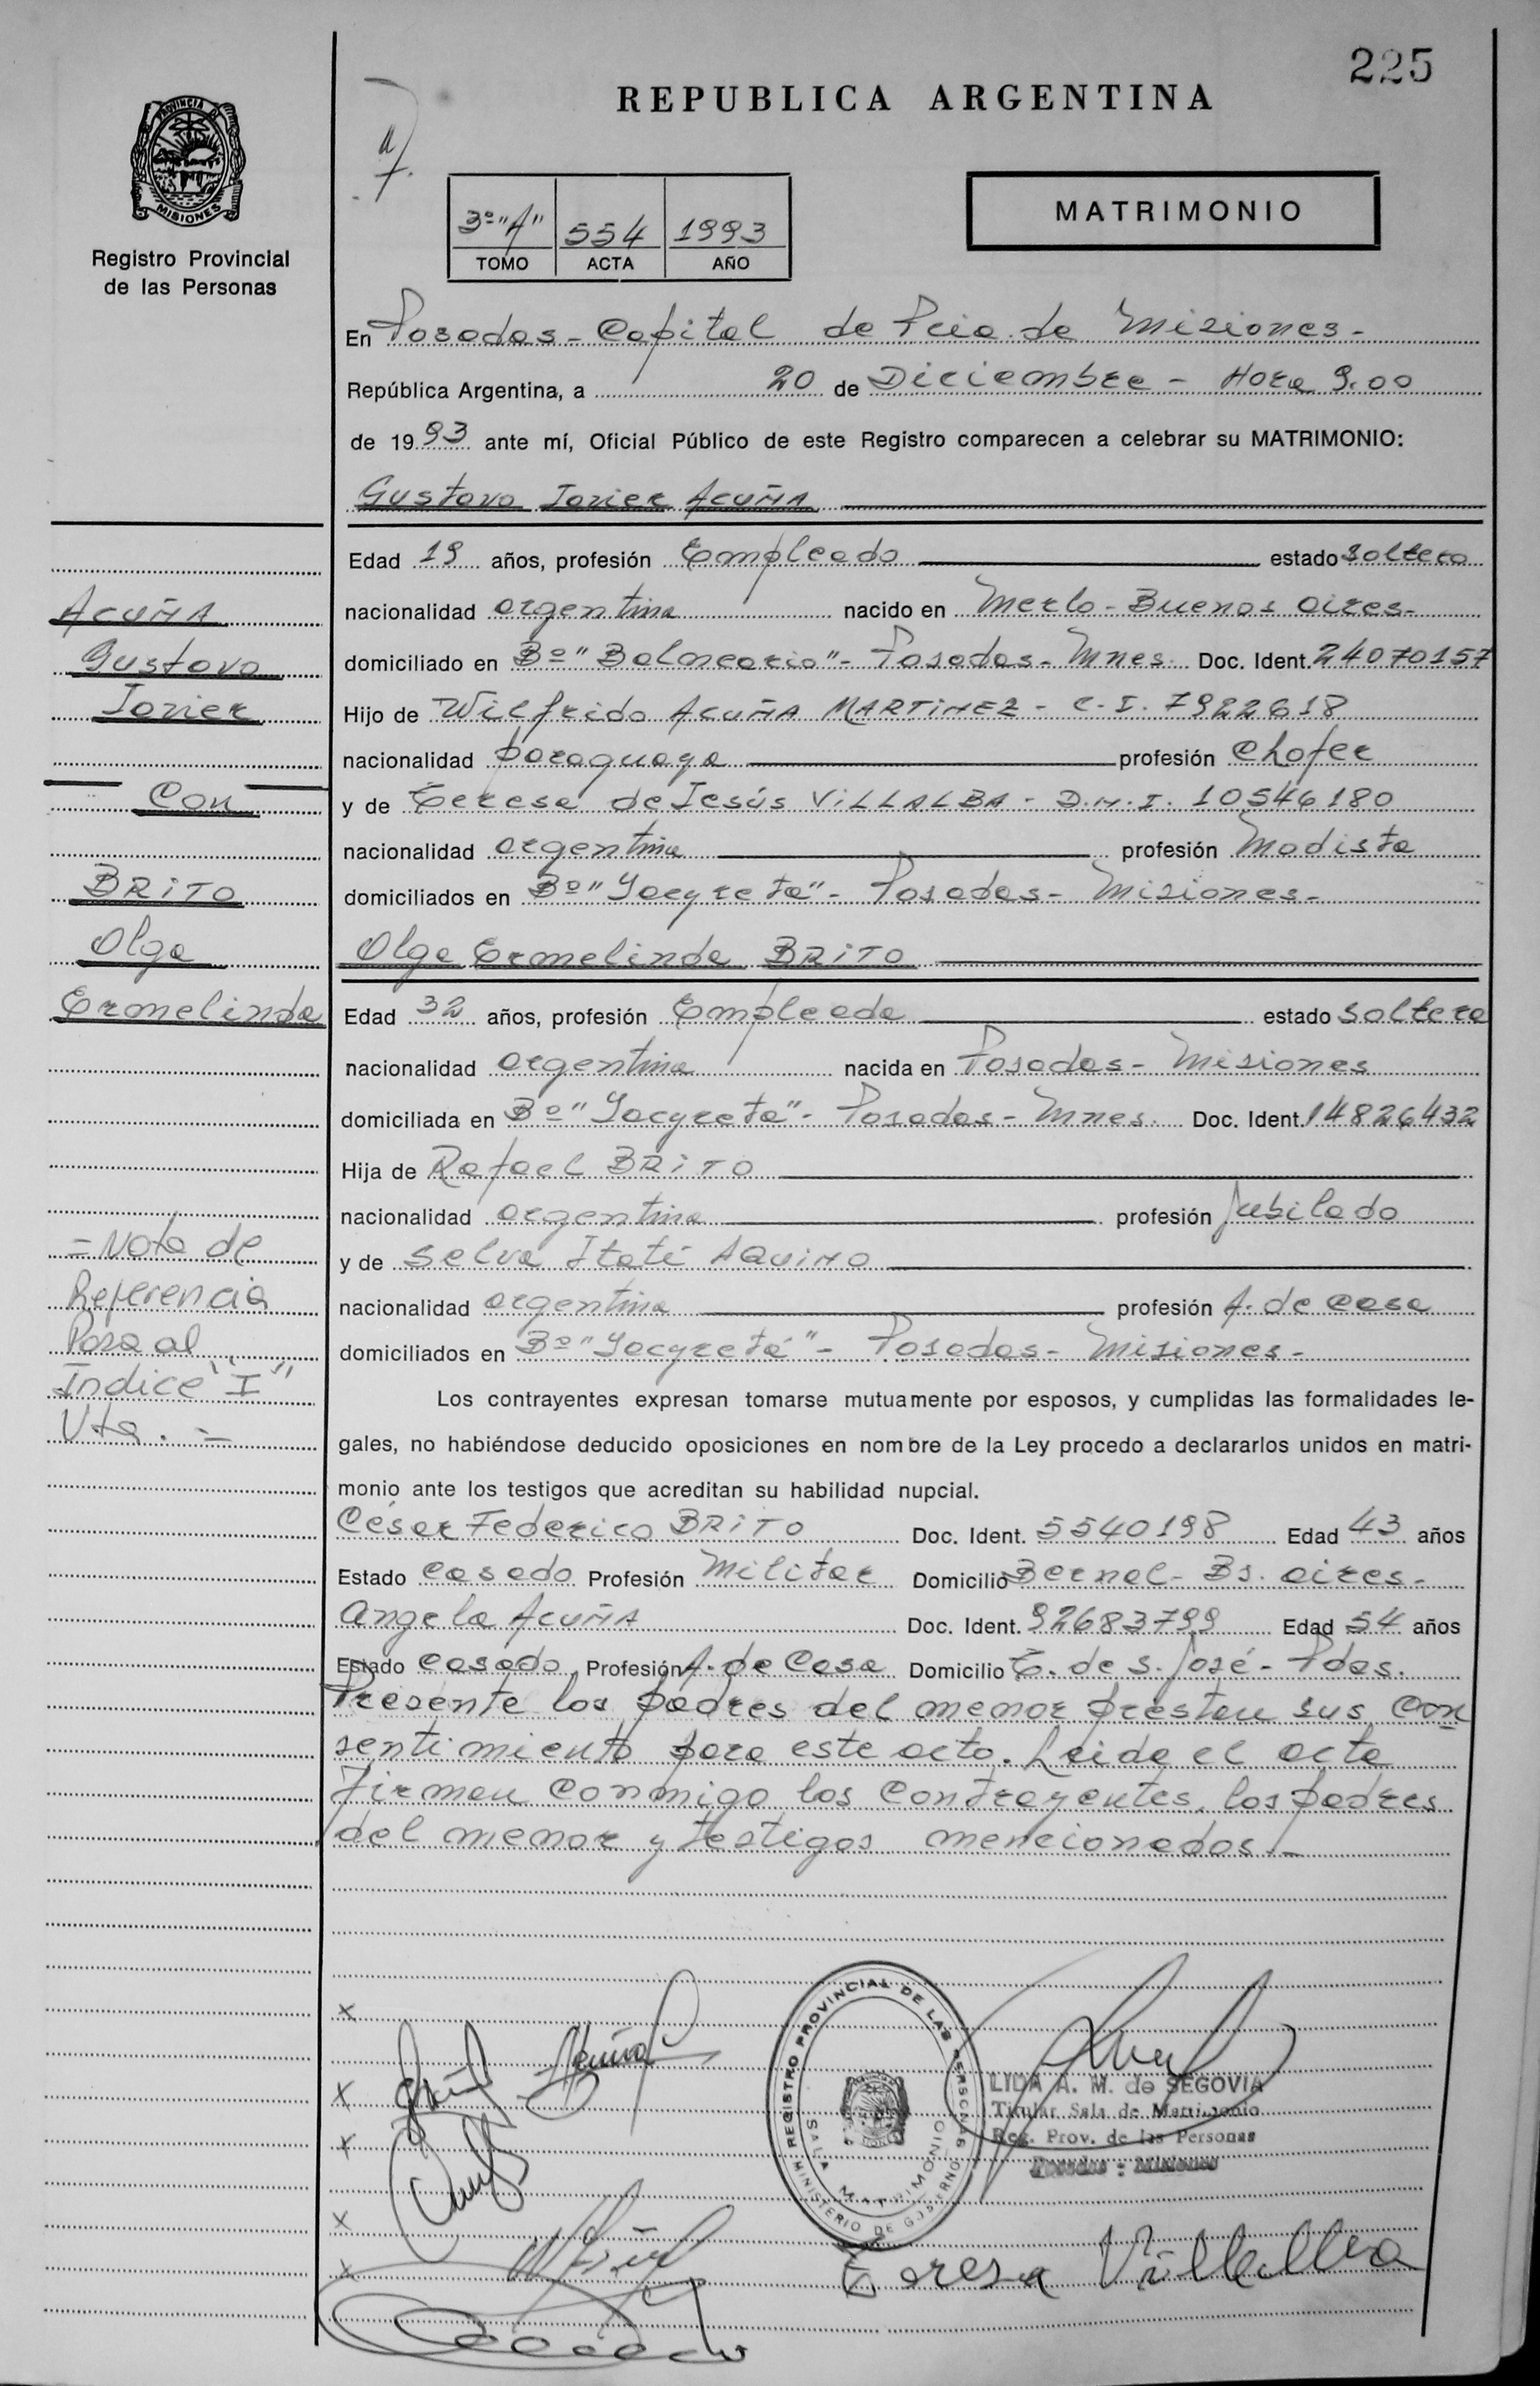 225
REPUBLICA ARGENTINA
PROVINCIA DE
MISIONES
Registro Provincial
de las Personas
3º "A" 554 1993
TOMO ACTA AÑO
MATRIMONIO
En Posadas - Capital de Pcia. de Misiones -
República Argentina, a 20 de Diciembre - Hora 9.00
de 1993 ante mí, Oficial Público de este Registro comparecen a celebrar su MATRIMONIO:
Gustavo Javier ACUÑA
Edad 19 años, profesión Empleado estado soltero
nacionalidad argentina nacido en Merlo - Buenos aires -
domiciliado en Bº "Balneario" - Posadas - Mnes. Doc. Ident. 24070157
Hijo de Wilfrido ACUÑA MARTINEZ - C.I. 7922618
nacionalidad paraguaya profesión Chofer
y de Teresa de Jesús VILLALBA - D.N.I. 10546180
nacionalidad argentina profesión Modista
domiciliados en Bº "Yacyreta" - Posadas - Misiones -
Olga Ermelinda BRITO
Edad 32 años, profesión Empleada estado soltera
nacionalidad argentina nacida en Posadas - Misiones
domiciliada en Bº "Yacyreta" - Posadas - Mnes. Doc. Ident. 14826432
Hija de Rafael BRITO
nacionalidad argentina profesión Jubilado
y de Selva Itatí AQUINO
nacionalidad argentina profesión A. de casa
domiciliados en Bº "Yacyretá" - Posadas - Misiones -
Los contrayentes expresan tomarse mutuamente por esposos, y cumplidas las formalidades le-
gales, no habiéndose deducido oposiciones en nombre de la Ley procedo a declararlos unidos en matri-
monio ante los testigos que acreditan su habilidad nupcial.
César Federico BRITO Doc. Ident. 5540198 Edad 43 años
Estado casado Profesión Militar Domicilio Bernal - Bs. aires -
Angela ACUÑA Doc. Ident. 92683799 Edad 54 años
Estado casada Profesión A. de Casa Domicilio de S. José - Pdas.
Presente los padres del menor prestan sus con
sentimiento para este acto. Leida el acta
firman conmigo los contrayentes, los padres
del menor y testigos mencionados -
ACUÑA
Gustavo
Javier
Con
BRITO
Olga
Ermelinda
= Nota de
Referencia
Pasa al
Indice "I"
Vta. =
x
x Acuña
x
x
x
REGISTRO PROVINCIAL DE LAS PERSONAS
SALA MATRIMONIO
MINISTERIO DE GOBIERNO
LIDA A. M. de SEGOVIA
Titular Sala de Matrimonio
Reg. Prov. de las Personas
Posadas - Misiones
Teresa Villalba